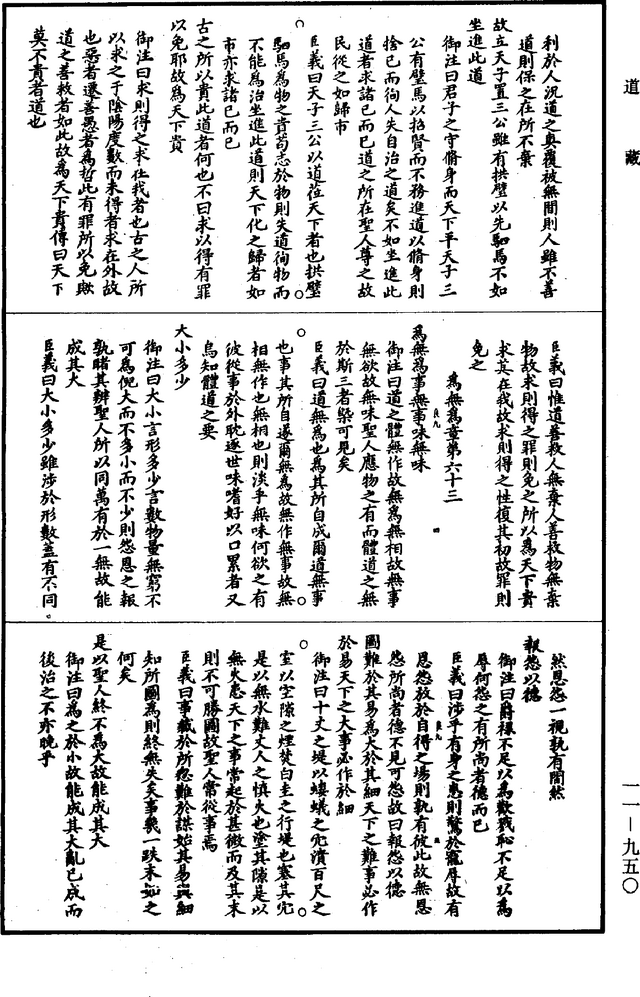 道藏
利於人況道之奧覆被無間則人雖不善
道則保之在所不棄
故立天子置三公雖有拱璧以先駟馬不如
坐進此道
御注曰君子之守脩身而天下平天子三
公有璧馬以招賢而不務進道以脩身則
捨己而徇人失自治之道矣不如坐進此
道者求諸己而已道之所在聖人尊之故
民從之如歸市
臣義曰天子三公以道莅天下者也拱璧
駟馬為物之貴苟志於物則失道徇物而
不能為治坐進此道則天下化之歸者如
市亦求諸己而已
古之所以貴此道者何也不曰求以得有罪
以免耶故為天下貴
御注曰求則得之求在我者也古之人所
以求之于陰陽度數而未得者求在外故
也惡者遷善愚者為哲此有罪所以免歟
道之善救者如此故為天下貴傳曰天下
莫不貴者道也
臣義曰惟道善救人無棄人善救物無棄
物故求則得之罪則免之所以為天下貴
求其在我故求則得之性復其初故罪則
免之
為無為章第六十三
為無為事無事味無味
御注曰道之體無作故無為無相故無事
無欲故無味聖人應物之有而體道之無
於斯三者槩可見矣
臣義曰道無為也為其所自成爾道無事
也事其所自遂爾無為故無作無事故無
相無作也無相也則淡乎無味何欲之有
彼從事於外耽逐世味嗜好以口累者又
烏知體道之要
大小多少
御注曰大小言形多少言數物量無窮不
可為倪大而不多小而不少則怨恩之報
孰睹其辨聖人所以同萬有於一無故能
成其大
臣義曰大小多少雖涉於形數蓋有不同
然恩怨一視孰有間然
報怨以德
御注曰爵祿不足以為勸戮恥不足以為
辱何怨之有所尚者德而已
臣義曰涉乎有身之患則驚於寵辱故有
恩怨救於自得之場則孰有彼此故無恩
怨所尚者德不見可怨故曰報怨以德
圖難於其易為大於其細天下之難事必作
於易天下之大事必作於細
御注曰十丈之堤以螻蟻之穴潰百尺之
室以突隙之煙焚白圭之行堤也塞其穴
是以無水難丈人之慎火也塗其隙是以
無火患天下之事常起於甚微而及其末
則不可勝圖故聖人常從事焉
臣義曰事藏於所忽難於謀始其易與細
知所圖為則終無失矣事幾一跌末如之
何矣
是以聖人終不為大故能成其大
御注曰為之於小故能成其大亂已成而
後治之不亦晚乎
一一—九五〇